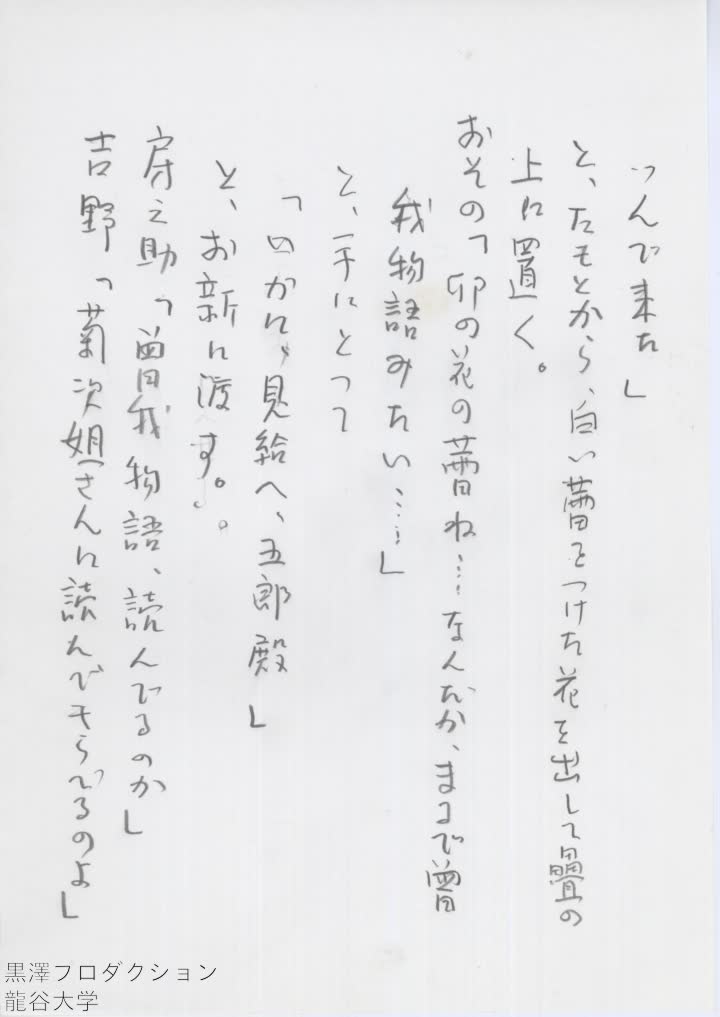 つんで来た」
と、たもとから、白い蕾をつけた花を出して畳の
上に置く。
おその「卯の花の蕾ね…なんだか、まるで曽
我物語みたい……」
と、手にとって
「いかに、見給へ、五郎殿」
と、お新に渡す。
房之助「曽我物語、読んでるのか」
吉野「菊次姐さんに読んでもらってるのよ」
黒澤プロダクション
龍谷大学